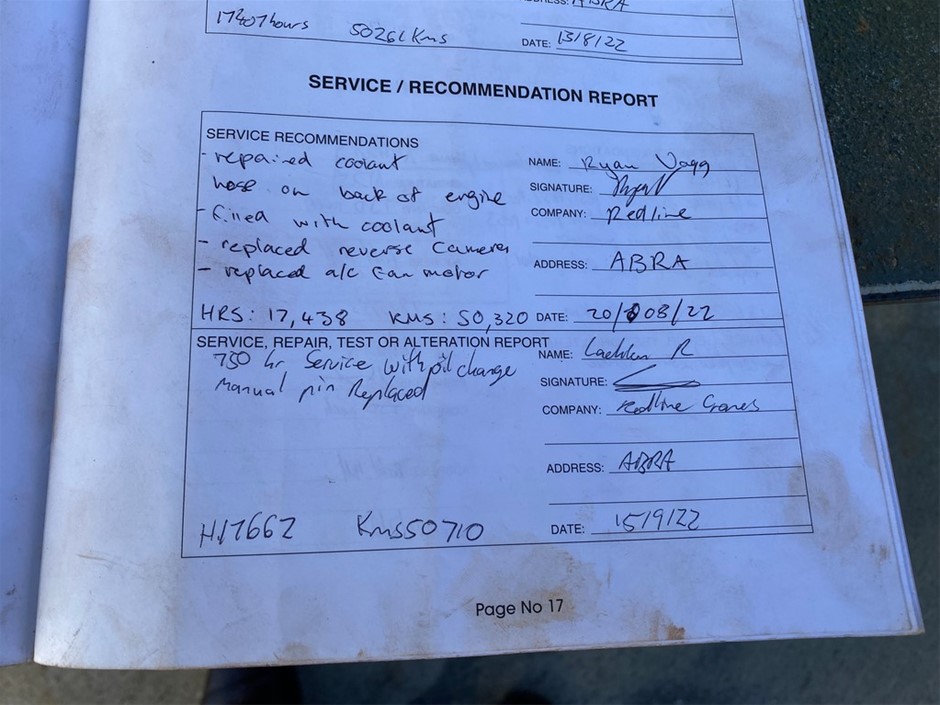 ADDRESS: ABRA
17407hours 50261 Kms DATE: 13/8/22
SERVICE / RECOMMENDATION REPORT
SERVICE RECOMMENDATIONS
- repaired coolant
hose on back of engine
- filled with coolant
- replaced reverse camera
- replaced a/c fan motor
HRS: 17,438 KMS: 50,320
NAME: Ryan Vagg
SIGNATURE:
COMPANY: Redline
ADDRESS: ABRA
DATE: 20/08/22
SERVICE, REPAIR, TEST OR ALTERATION REPORT
750 hr Service with oil change
Manual pin Replaced
H17662 Kms50710
NAME: Lachlan R
SIGNATURE:
COMPANY: Redline Cranes
ADDRESS: ABRA
DATE: 15/9/22
Page No 17